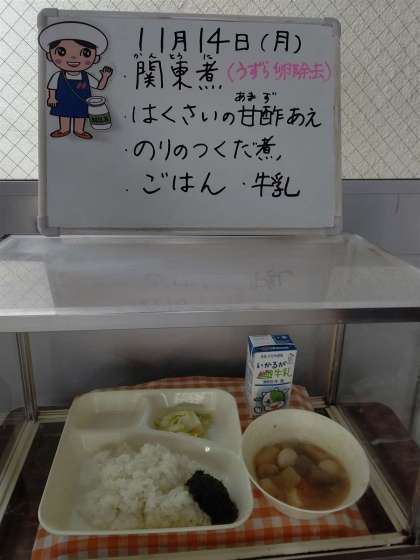 11月14日(月)
かんとうに
・関東煮(うずら卵除去)
あまず
・はくさいの甘酢あえ
・のりのつくだ煮
・ごはん ・牛乳
いかるが
牛乳